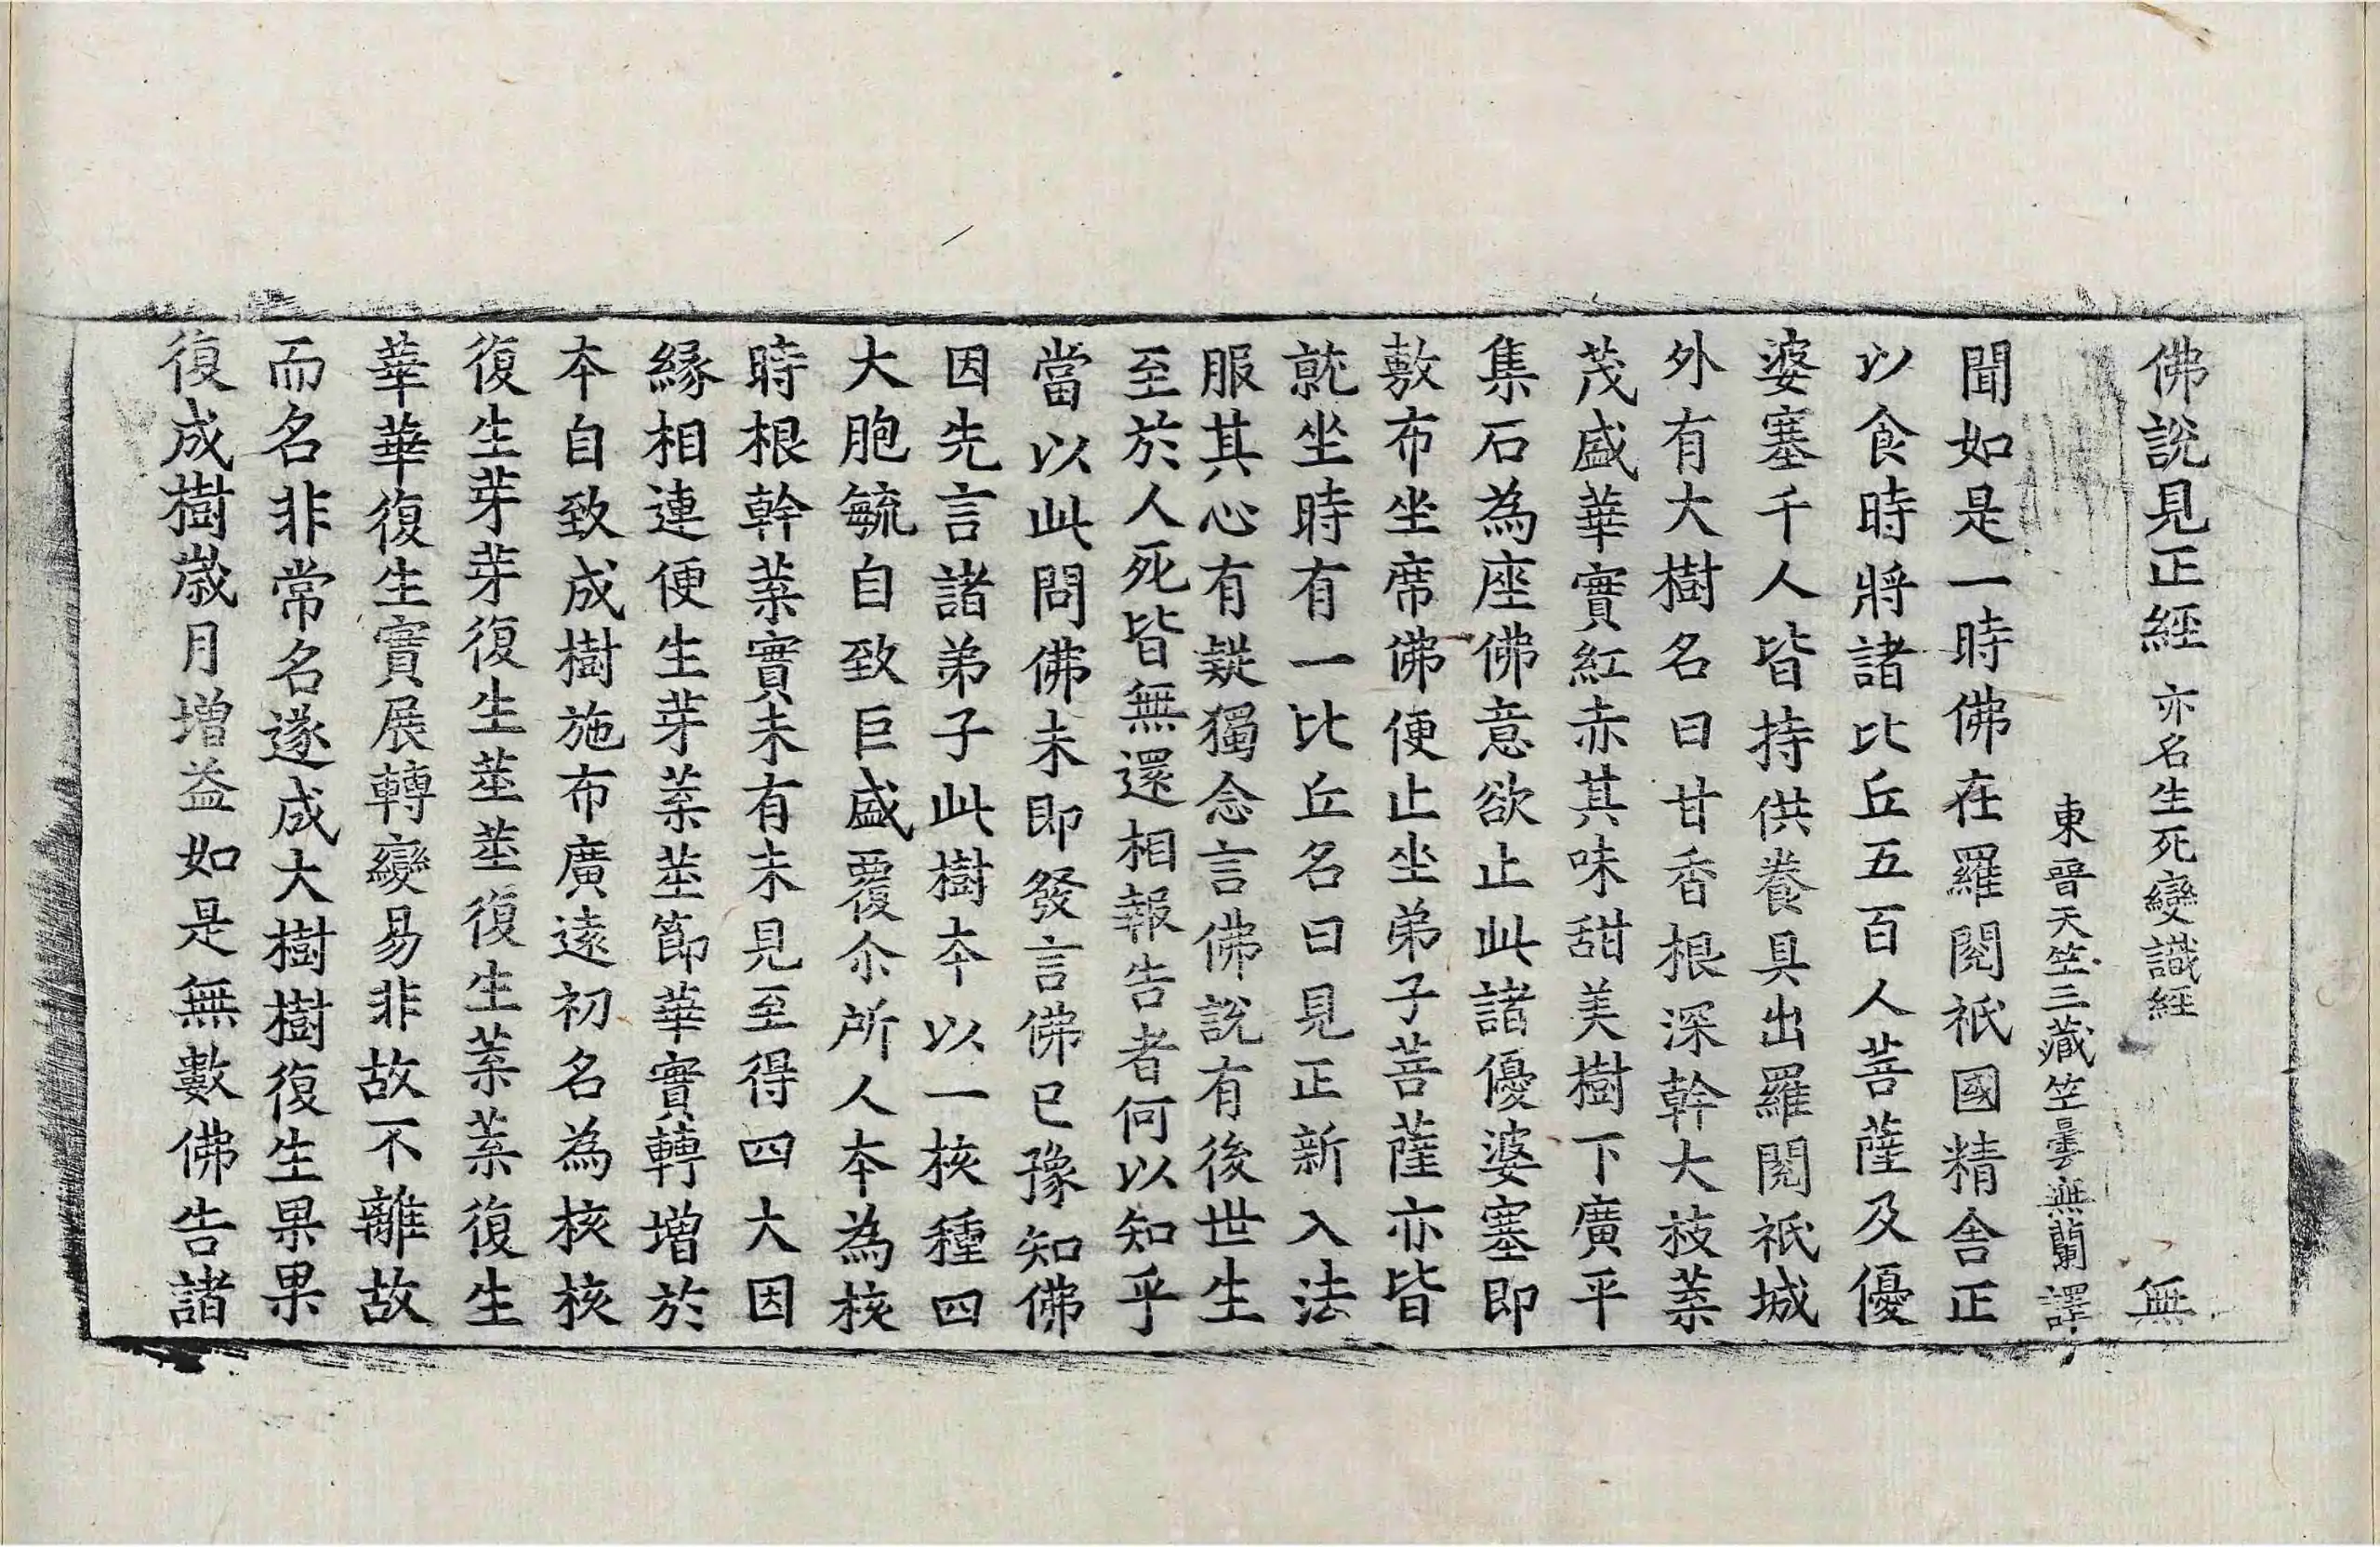 佛說見正經 亦名生死變識經 無
東晉天竺三藏竺曇無蘭譯
聞如是一時佛在羅閱祇國精舍正
以食時將諸比丘五百人菩薩及優
婆塞千人皆持供養具出羅閱祇城
外有大樹名曰甘香根深幹大枝葉
茂盛華實紅赤其味甜美樹下廣平
集石為座佛意欲止此諸優婆塞即
敷布坐席佛便止坐弟子菩薩亦皆
就坐時有一比丘名曰見正新入法
服其心有疑獨念言佛說有後世生
至於人死皆無還相報告者何以知乎
當以此問佛未即發言佛已豫知佛
因先言諸弟子此樹本以一核種四
大胞毓自致巨盛覆尒所人本為核
時根幹葉實未有未見至得四大因
緣相連便生芽葉莖節華實轉增於
本自致成樹施布廣遠初名為核核
復生芽芽復生莖莖復生葉葉復生
華華復生實展轉變易非故不離故
而名非常名遂成大樹樹復生果果
復成樹歲月增益如是無數佛告諸